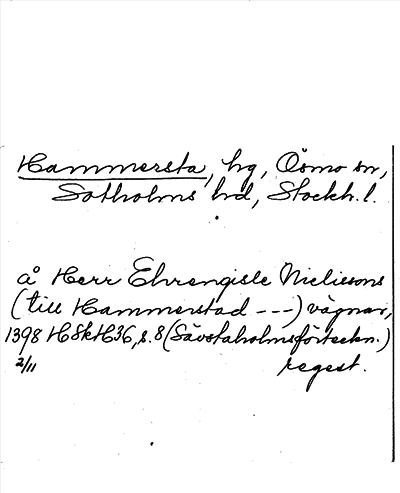 Hammersta, hg, Ösmo sn,
Sotholms hd, Stockh. l.
å Herr Ehrengisle Nielissons
(till Hammerstad ---) vägnar,
1398 HSkH36, s. 8 (Sävstaholmsförteckn.)
2/11 regest.